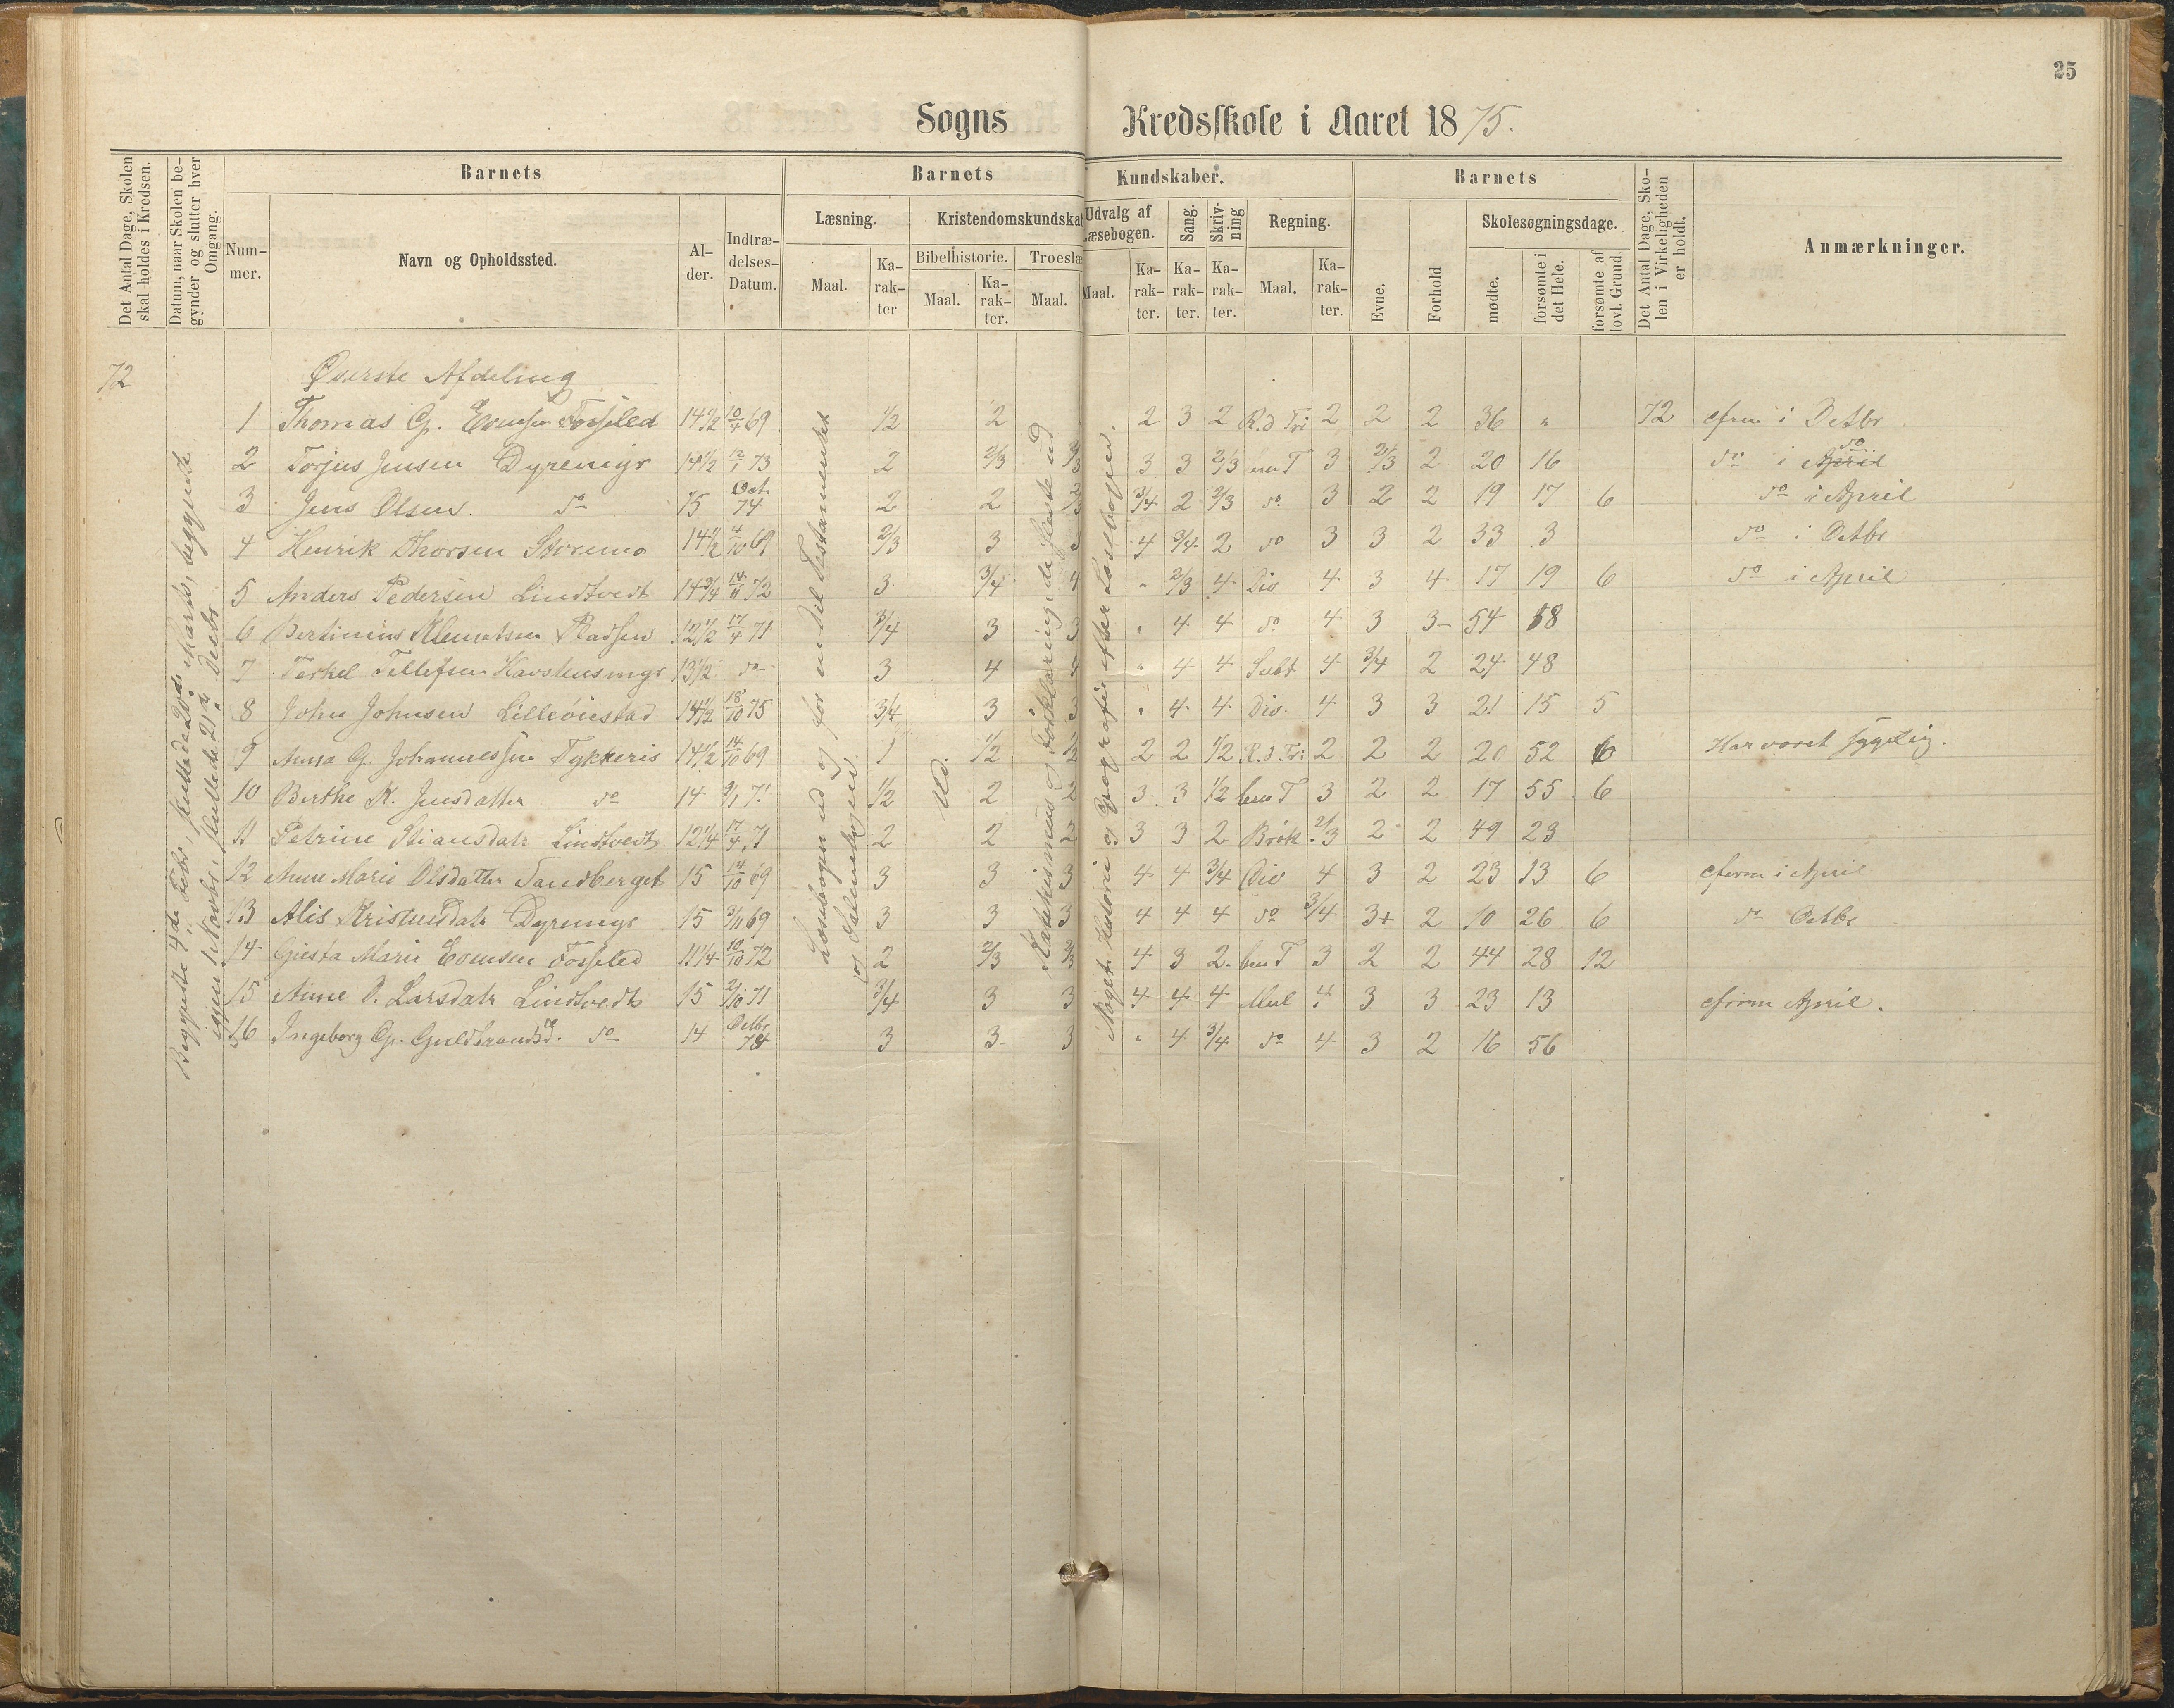 25
Sogns Kredsskole i Aaret 1875.
Det Antal Dage, Skolen skal holdes i Kredsen.
Datum, naar Skolen begynder og slutter hver Omgang.
Barnets
Nummer.
Navn og Opholdssted.
Alder.
Indtrædelses-Datum.
Barnets Kundskaber.
Læsning.
Maal.
Karakter
Kristendomskundskab
Bibelhistorie.
Maal.
Karakter.
Troeslæ
Maal.
Udvalg af Læsebogen.
Maal.
Karakter.
Sang.
Karakter.
Skrivning
Karakter.
Regning.
Maal.
Karakter.
Barnets
Evne.
Forhold
Skolesøgningsdage.
mødte.
forsømte i det Hele.
forsømte af lovl. Grund.
Det Antal Dage, Skolen i Virkeligheden er holdt.
Anmærkninger.
72
Øverste Afdeling
Begyndte 4de Febr., sluttede 20de Marts, begyndte igjen 1 Novbr., sluttede 21de Decbr.
Læsebogen ud og for en Del Testamentet og Salmebogen.
Ud.
Katekismus og Forklaringen de fleste ud
Noget Historie og Geografi efter Læsebogen.
1 Thomas G. Evensen Fosseled 14 1/2 10/4 69 1/2 2 2 3 2 R.d Tri 2 2 2 36 „ 72 cfrm i Octbr
2 Torjus Jensen Dyremyr 14 1/2 12/1 73 2 2/3 2/3 3 3 2/3 ben T 3 2/3 2 20 16 do i do
3 Jens Olsen. do 15 Oct 74 2 2 2/3 3/4 2 2/3 do 3 2 2 19 17 6 do i April
4 Henrik Thorsen Storemo 14 1/2 4/10 69 2/3 3 3 4 3/4 2 do 3 3 2 33 3 do i Octbr
5 Anders Pedersen Lindtvedt 14 3/4 14/11 72 3 3/4 4 „ 2/3 4 Div 4 3 4 17 19 6 do i April
6 Bertinius Klemetsen 12 1/2 17/4 71 3/4 3 3 „ 4 4 do 4 3 3- 54 18
7 Terkel Tellefsen Havstensmyr 13 1/2 do 3 4 4 „ 4 4 Subt 4 3/4 2 24 48
8 John Johnsen Lilleöiestad 14 1/2 18/10 75 3/4 3 3 „ 4 4 Div. 4 3 3 21 15 5
9 Anna G. Johannessen Tykkeris 14 1/2 14/10 69 1 1/2 1/2 2 2 1/2 R.d.Tri 2 2 2 20 52 6 Har været sygelig.
10 Berthe K. Jensdatter do 14 9/1 71 1/2 2 2 3 3 1/2 ben T 3 2 2 17 55 6
11 Petrine Stiansdatr Lindtvedt 12 1/4 17/4 71 2 2 2 3 3 2 Brök 2/3 2 2 49 23
12 Anne Marie Olsdatter Sandberget 15 14/10 69 3 3 3 4 4 3/4 Div 4 3 2 23 13 6 cferm i April
13 Alis Kristensdatr Dyremyr 15 3/11 69 3 3 3 4 4 4 do 3/4 3+ 2 10 26 6 do Octbr
14 Gjesta Marie Evensen Fosseled 11 1/4 10/10 72 2 2/3 2/3 4 3 2 ben T 3 2 2 44 28 12
15 Anne P. Larsdatr Lindtvedt 15 21/10 71 3/4 3 3 4 4 4 Mul 4 3 3 23 13 cfirm April.
16 Ingeborg G. Guldbrandsd. do 14 Octbr 74 3 3 3 „ 4 3/4 do 4 3 2 16 56